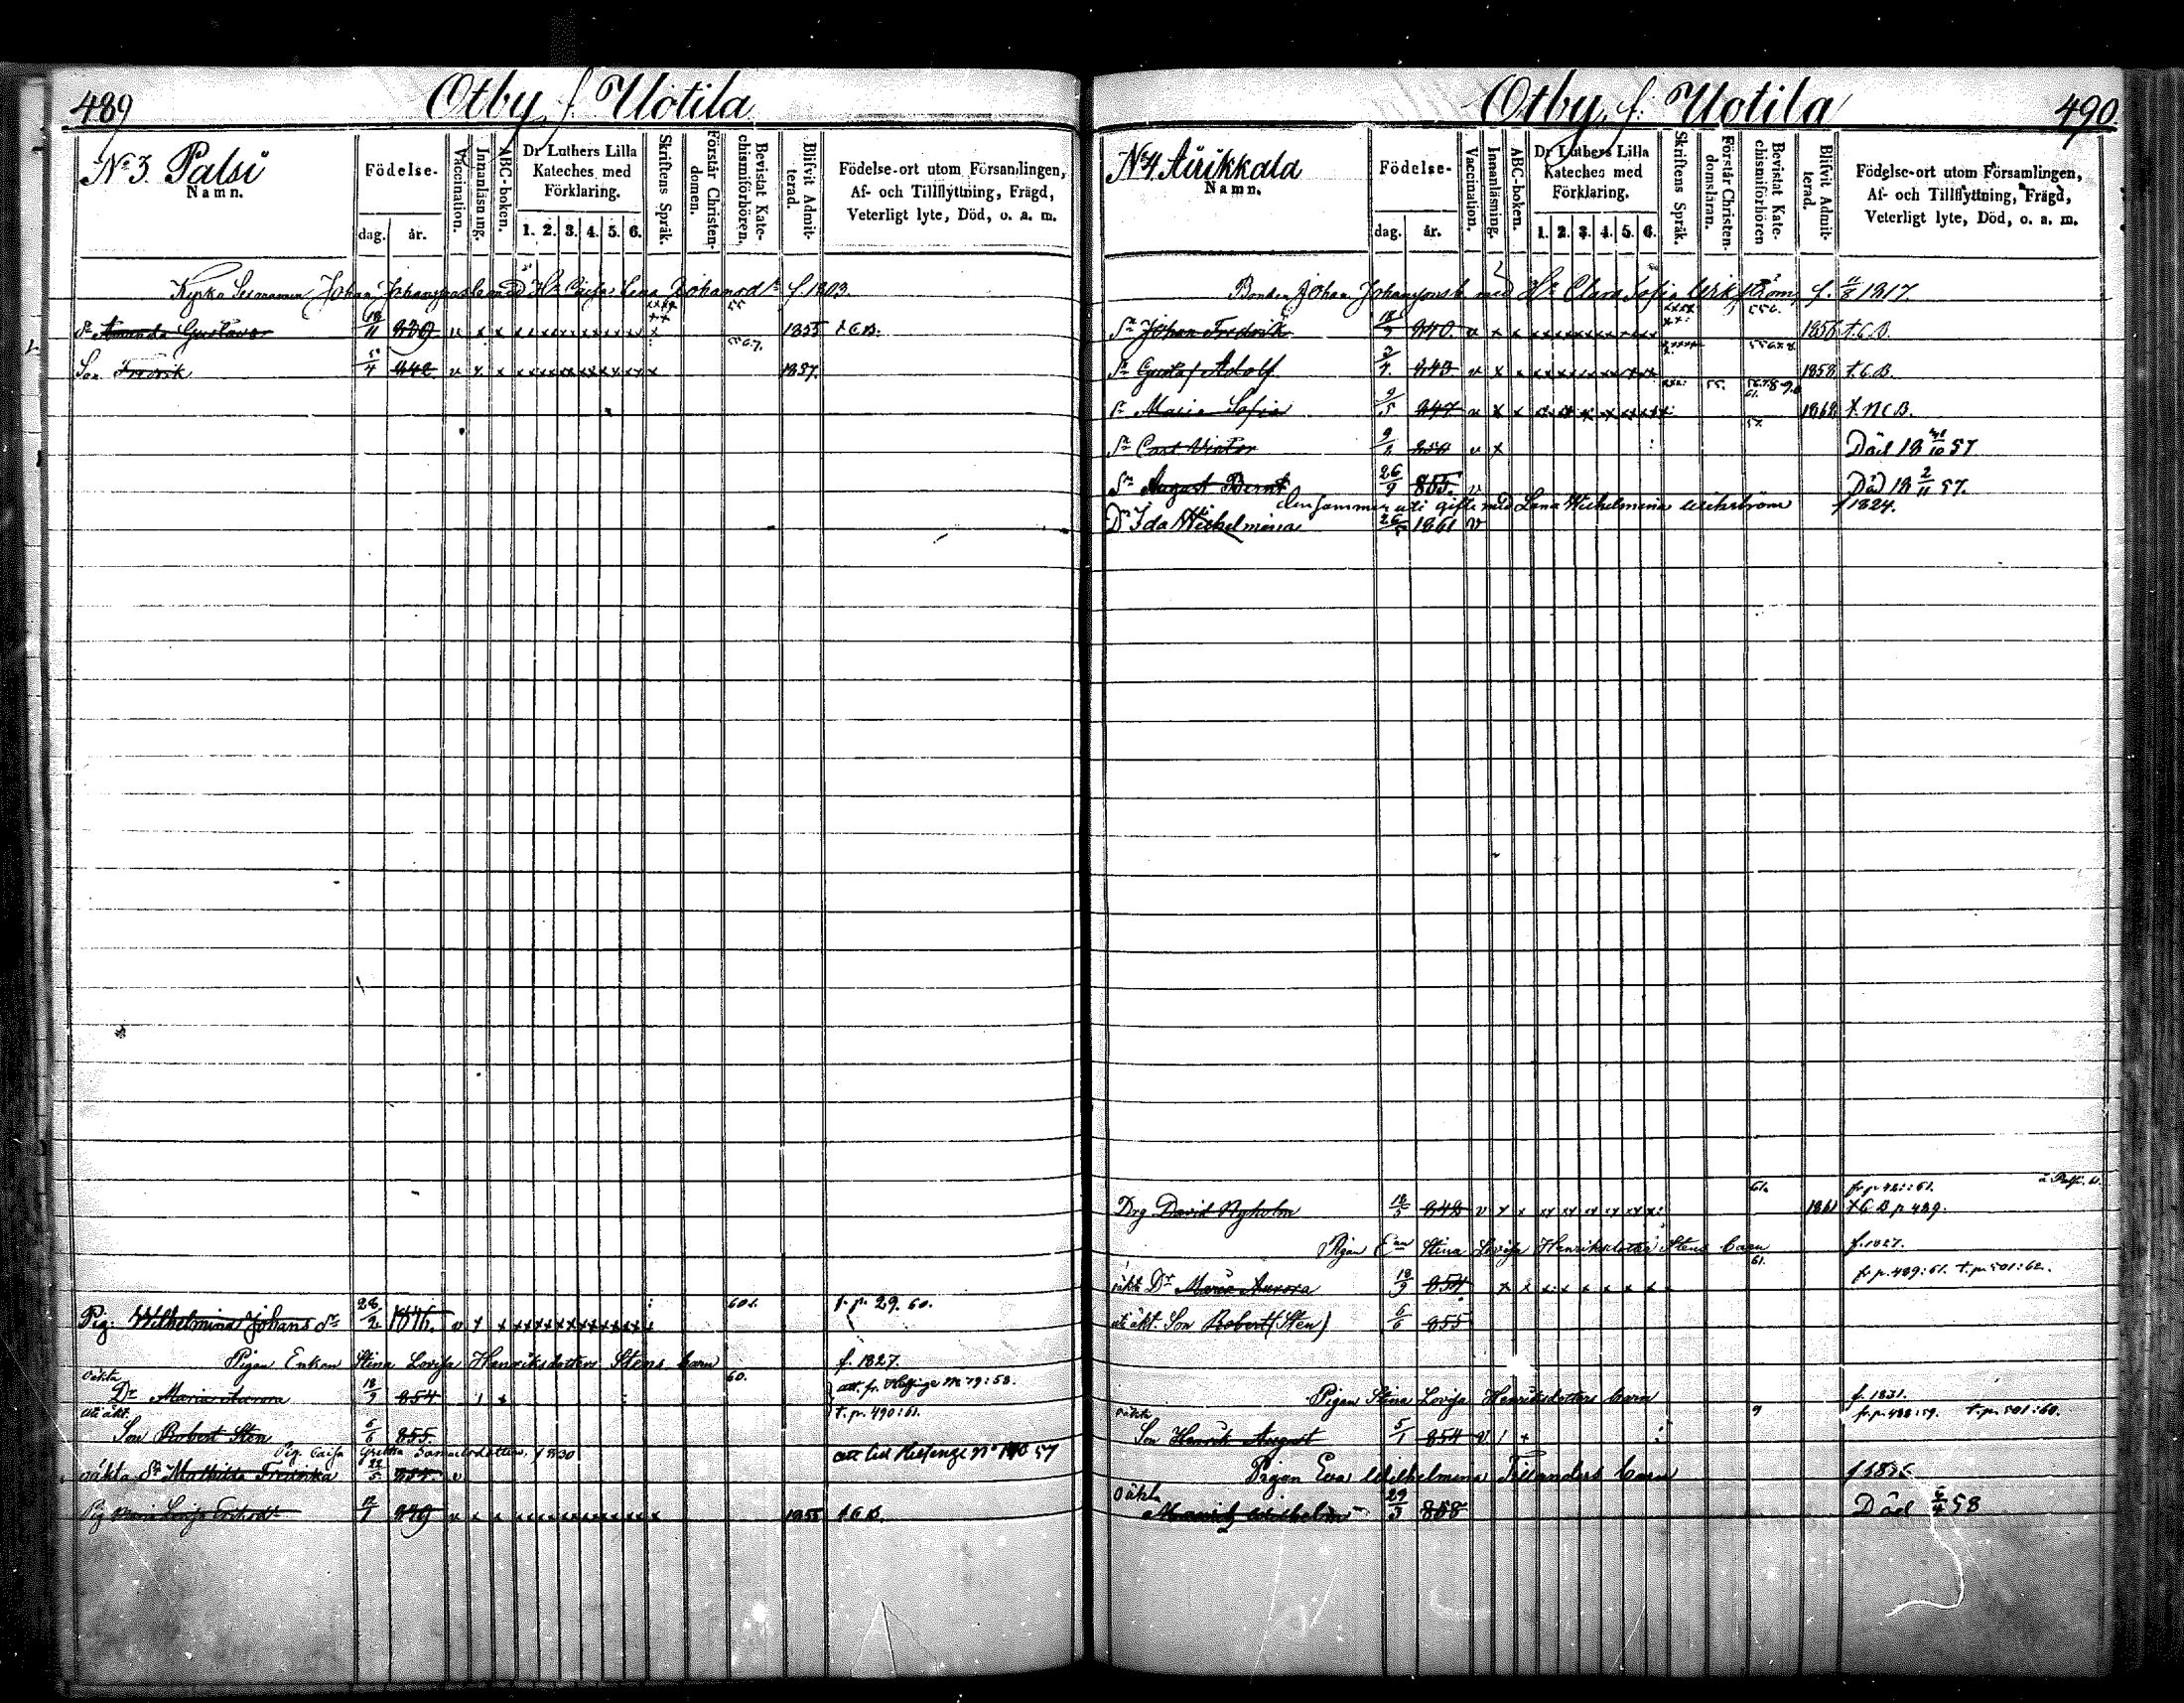 489
Otby f. Uotila
No 3. Palsi
Namn.
Födelse-
dag. år.
Vaccination.
Innanläsning.
ABC-boken.
Dr Luthers Lilla
Kateches med
Förklaring.
1. 2. 3. 4. 5. 6.
Skriftens Språk.
Förstår Christen-
domen.
Bevistat Kate-
chismiförhören.
Blifvit Admit-
terad.
Födelse-ort utom Församlingen,
Af- och Tillflyttning, Frägd,
Veterligt lyte, Död, o. a. m.
Johan Johansson med Hu Caisa Lena Johansdr f. 1803.
Dr Amanda Gustava 18/11 839 v x x 1855 t.C.B.
Son Fredrik 5/4 842 v x x 1857.
Pig. Wilhelmina Johansdr 28/2 1846. v 60. f. p. 29. 60.
Pigan Enkan Stina Lovisa Henriksdotters Stens barn f. 1827.
oäkta
Dr Maria Aurora 18/9 854 60. att. fr. Helsinge No 79:58.
uti äkt. t. p. 490:61.
Son Robert Sten 6/6 855.
Pig. Caisa Gretha Samuelsdotters, f 830 att till Helsinge No 57
oäkta Dr Mathilda Fredrika 22/5 854. v
Pig Maria Lovisa 839 v x x 1855 t.C.B.
Otby, f. Uotila
490.
No 4 Äirikkala
Namn.
Födelse-
dag. år.
Vaccination.
Innanläsning.
ABC-boken.
Dr Luthers Lilla
Kateches med
Förklaring.
1. 2. 3. 4. 5. 6.
Skriftens Språk.
Förstår Christen-
domsläran.
Bevistat Kate-
chismiförhören
Blifvit Admit-
terad.
Födelse-ort utom Församlingen,
Af- och Tillflyttning, Frägd,
Veterligt lyte, Död, o. a. m.
Bonden Johan Johanssons barn med Hu Clara Sofia Wikström, f. 1817.
Sn Johan Fredrik 18/3 840. v x x 1856 t.C.B.
Sn Gustaf Adolf 3/4. 843 v x x 1858 t.C.B.
Dr Maria Sofia 9/5 847 v x x 1862 t.N.C.B.
Sn Carl Victor v x Död 18 /10 57
Sn August Bernt 26/9 855. v Död 18 2/11 57.
densammes uti gifte med Lena Wilhelmina Wikström f 1824.
Dr Ida Wilhelmina 26/5 1861 v
fr. p. 61.
Drg David Nyholm 18/5 842 v x x 1861 t.C.B. p. 489.
Pigan Enn Stina Lovisa Henriksdotter Stens barn f. 1827.
oäkt Dr Maria Aurora 18/9 854 61. fr. p. 489:61. t. p. 501:62.
uti äkt. Son Robert (Sten) 6/6 855
Pigan Stina Lovisa Henriksdotters barn f. 1831.
oäkta
Son Henrik August 5/1 854 v 9 fr. p. 488:59. t. p. 501:60.
Pigan Eva Wilhelmina Tillanders barn
oäkta
Mauritz Wilhelm 29/3 858 Död 58